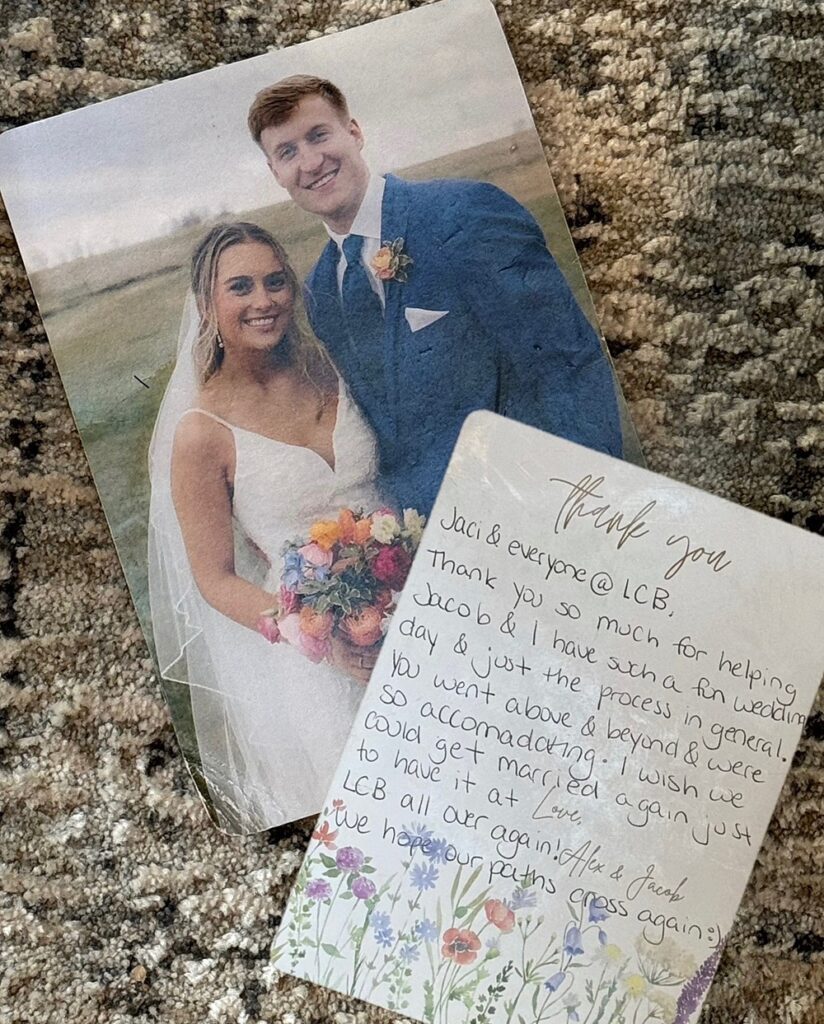 thank you
Jaci & everyone @ LCB,
Thank you so much for helping
Jacob & I have such a fun wedding
day & just the process in general.
You went above & beyond & were
so accomadating. I wish we
could get married again just
to have it at
LCB all over again!
We hope our paths cross again :)
Love,
Alex & Jacob